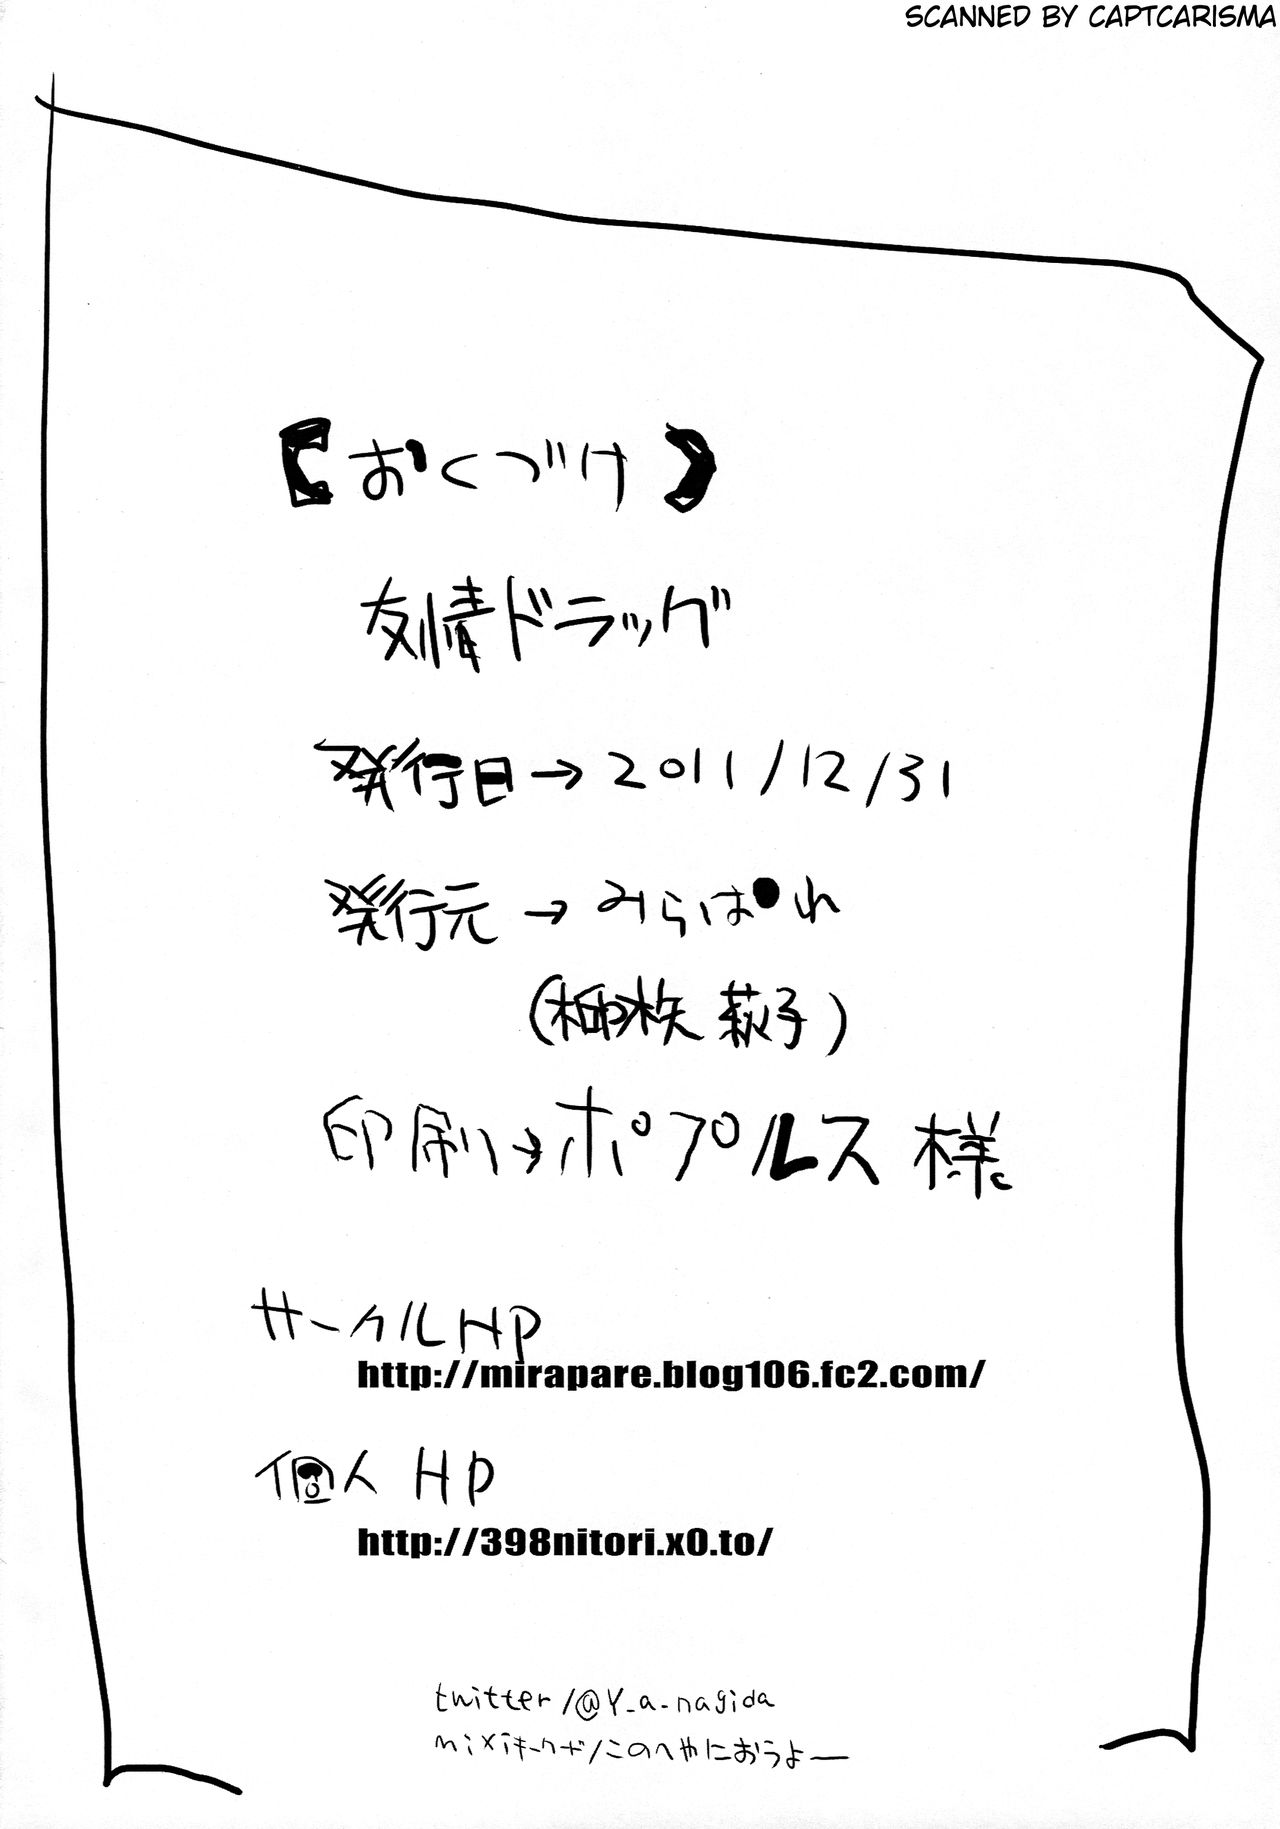 SCANNED BY CAPTCARISMA
【おくづけ】
友情ドラッグ
発行日→2011/12/31
発行元→みらぱ●れ
萩子)
印刷→ポプルス様
サークルHP
http://mirapare.blog106.fc2.com/
個人HP
http://398nitori.x0.to/
twitter/@Y_a_nagida
mixiキーワード/このへやにおうよー